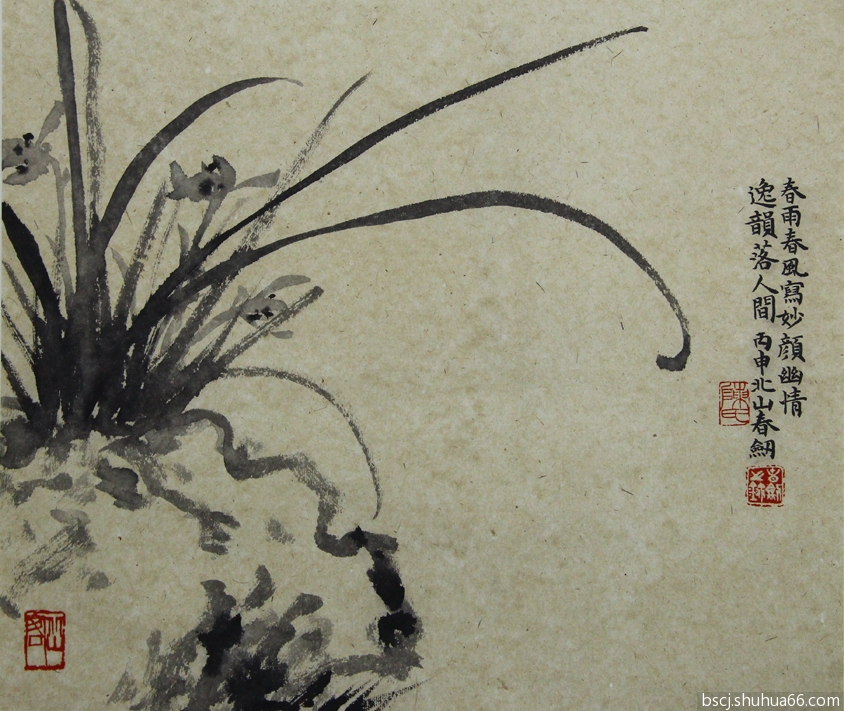 春雨春風寫妙顏幽情
逸韻落人間 丙申北山春劒
陳氏
bscj.shuhua66.com